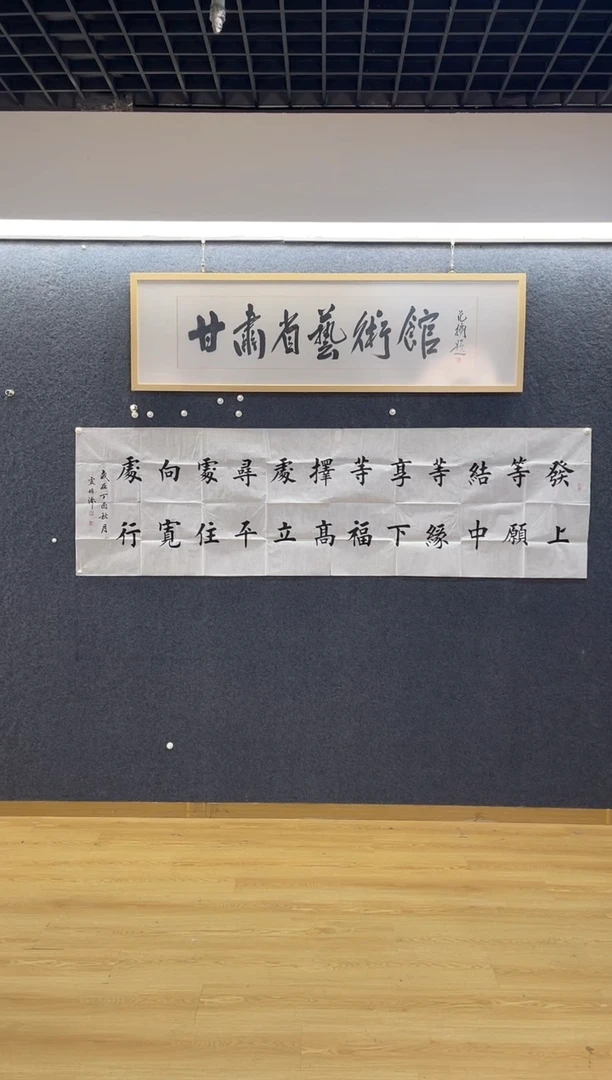 甘肅省藝術館
發上
等願
結中
等緣
享下
等福
擇高
處立
尋平
處住
向寬
處行
歲在丁酉秋月